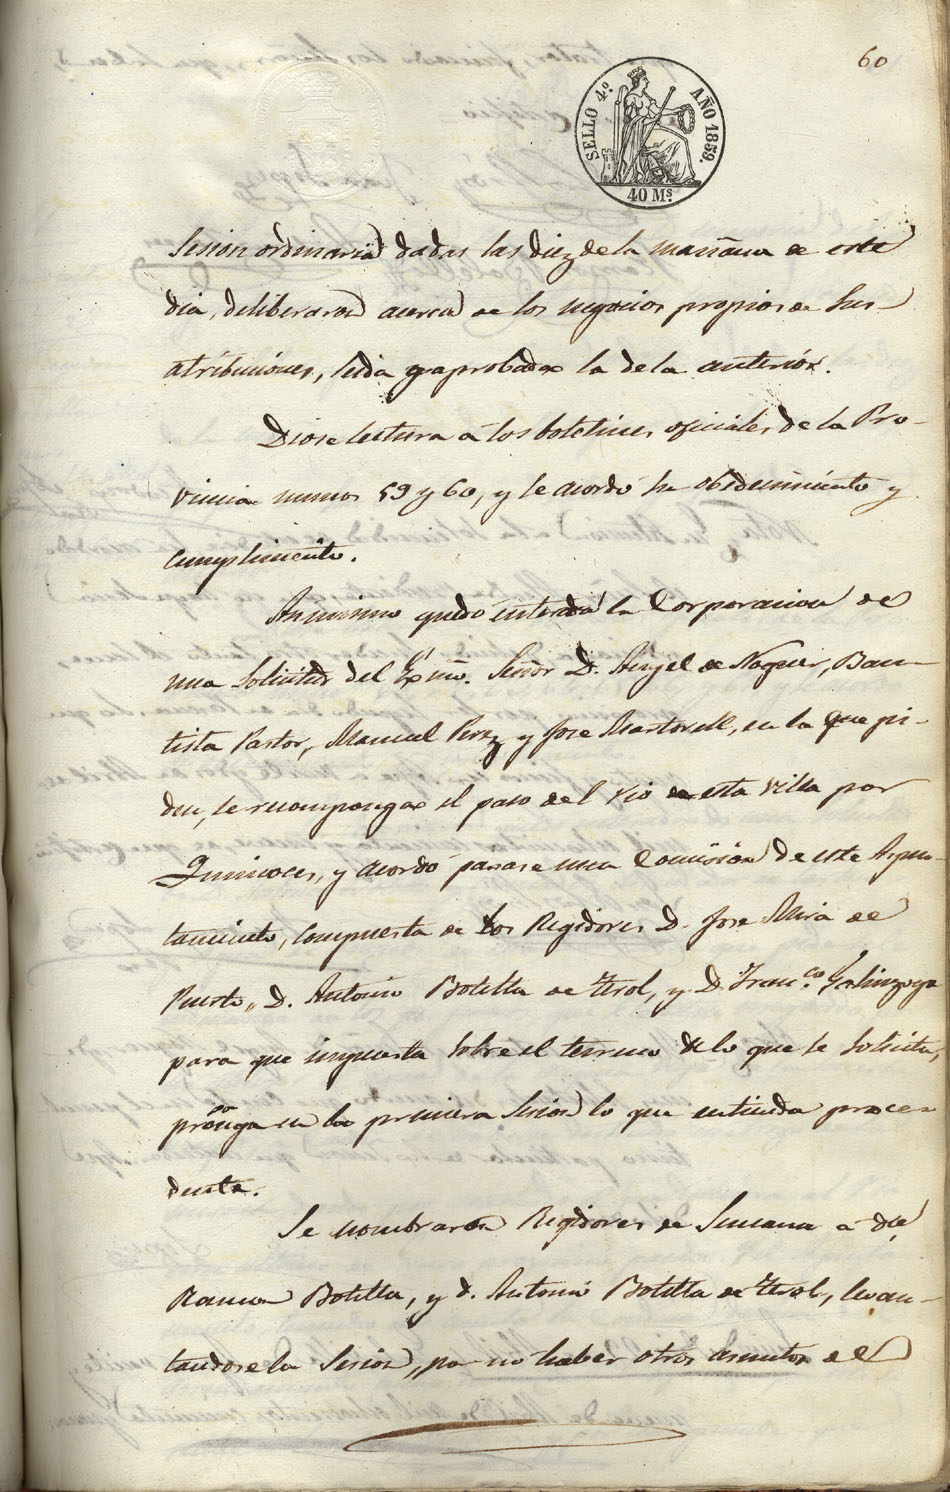 60
SELLO 4.º AÑO 1859.
40 Mˢ.
Sesion ordinaria dadas las diez de la mañana de este
dia, deliberaron acerca de los negocios propios de sus
atribuciones, leida y aprobada la de la anterior.
Diose lectura á los boletines oficiales de la Pro-
vincia numos 59 y 60, y se acordó su obedecimiento y
cumplimiento.
Asimismo quedó enterada la Corporacion de
una solicitud del Exmo. Señor D. Angel de Noguer, Bau-
tista Pastor, Manuel Perez y Jose Martorell, en la que pi-
den, se recomponga el paso del rio de esta villa por
y acordó pasase una Comision de este Ayun-
tamiento, compuesta de los Regidores D. Jose Mira de
Puerto, D. Antonio Botella de Terol, y D. Franᶜᵒ Galinzoga
para que impuesta sobre el terreno de lo que se solicita,
proponga en la primera sesion lo que entienda proce-
dente.
Se nombraron Regidores de Semana á dⁿ
Ramon Botella, y d. Antonio Botella de Terol, levan-
tandose la Sesion, por no haber otros asuntos de